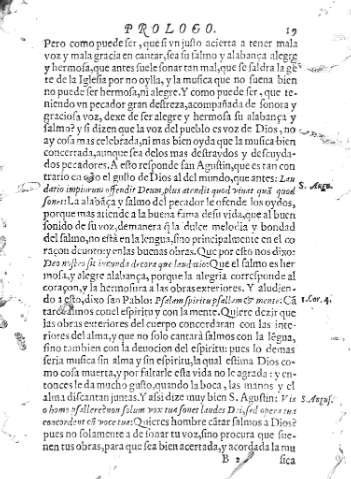 PROLOGO. 19
Pero como puede ser, que si vn justo acierta a tener mala
voz y mala gracia en cantar, sea su salmo y alabança alegre
y hermosa, que antes suele sonar tan mal, que se saldra la gẽ
te de la Iglesia por no oylla, y la musica que no suena bien
no puede ser hermosa, ni alegre. Y como puede ser, que te-
niendo vn pecador gran destreza, acompañada de sonora y
graciosa voz, dexe de ser alegre y hermosa su alabança y
salmo? y si dizen que la voz del pueblo es voz de Dios, no
ay cosa mas celebrada, ni mas bien oyda que la musica bien
concertada, aunque sea de los mas destraydos y descuyda-
dos pecadores. A esto responde san Agustin, que es tan con
trario en esto el gusto de Dios al del mundo, que antes: Lau
S. Augu.
datio impiorum offendit Deum, plus atendit quod viuat quã quod
sonet: La alabãça y salmo del pecador le ofende los oydos,
porque mas atiende a la buena fama de su vida, que al buen
sonido de su voz, de manera q̃ la dulce melodia y bondad
del salmo, no està en la lengua, sino principalmente en el co
raçon deuoto: y en las buenas obras. Que por esto nos dixo:
Deo nostro sit iucunda decora que laudatio: Que el salmo es her
mosa, y alegre alabança, porque la alegria corresponde al
coraçon, y la hermosura a las obras exteriores. Y aludien-
do a esto, dixo san Pablo: Psalam spiritu psallam & mente: Cã
1. Cor. 4.
tarè salmos con el espiritu y con la mente. Quiere dezir que
las obras exteriores del cuerpo concordaran con las inte-
riores del alma, y que no solo cantarà salmos con la lẽgua,
sino tambien con la deuocion del espiritu: pues lo demas
seria musica sin alma y sin espiritu, la qual estima Dios co-
mo cosa muerta, y por faltarle esta vida no le agrada: y en-
tonces le da mucho gusto, quando la boca, las manos y el
alma discantan juntas. Y assi dize muy bien S. Agustin: Vis
S. Augus.
o homo psallere? non solum vox tua sonet laudes Dei, sed opera tua
concordent cũ voce tua: Quieres hombre cãtar salmos à Dios?
pues no solamente a de sonar tu voz, sino procura que sue-
nen tus obras, para que sea bien acertada, y acordada la mu
B 2 sica